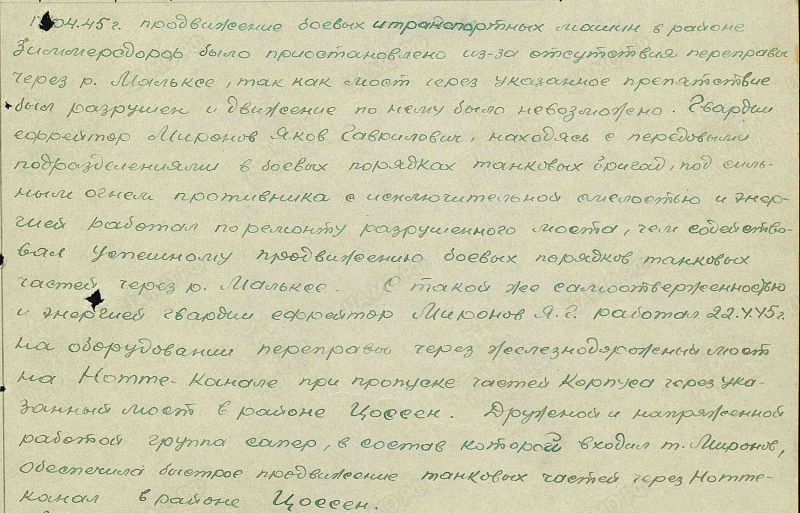 04.45г. продвижение боевых и транспортных машин в районе
Зиммерсдорф было приостановлено из-за отсутствия переправы
через р. Мальксе, так как мост через указанное препятствие
был разрушен и движение по нему было невозможно. Гвардии
ефрейтор Миронов Яков Гаврилович, находясь с передовыми
подразделениями в боевых порядках танковых бригад, под силь-
ным огнем противника с исключительной смелостью и энер-
гией работал по ремонту разрушенного моста, чем содейство-
вал успешному продвижению боевых порядков танковых
частей через р. Мальксе. С такой же самоотверженностью
и энергией гвардии ефрейтор Миронов Я.Г. работал 22.4.45г.
на оборудовании переправы через железнодорожный мост
на Нотте-Канале при пропуске частей Корпуса через ука-
занный мост в районе Цоссен. Дружной и напряженной
работой группа сапер, в состав которой входил т. Миронов,
обеспечила быстрое продвижение танковых частей через Нотте-
канал в районе Цоссен.